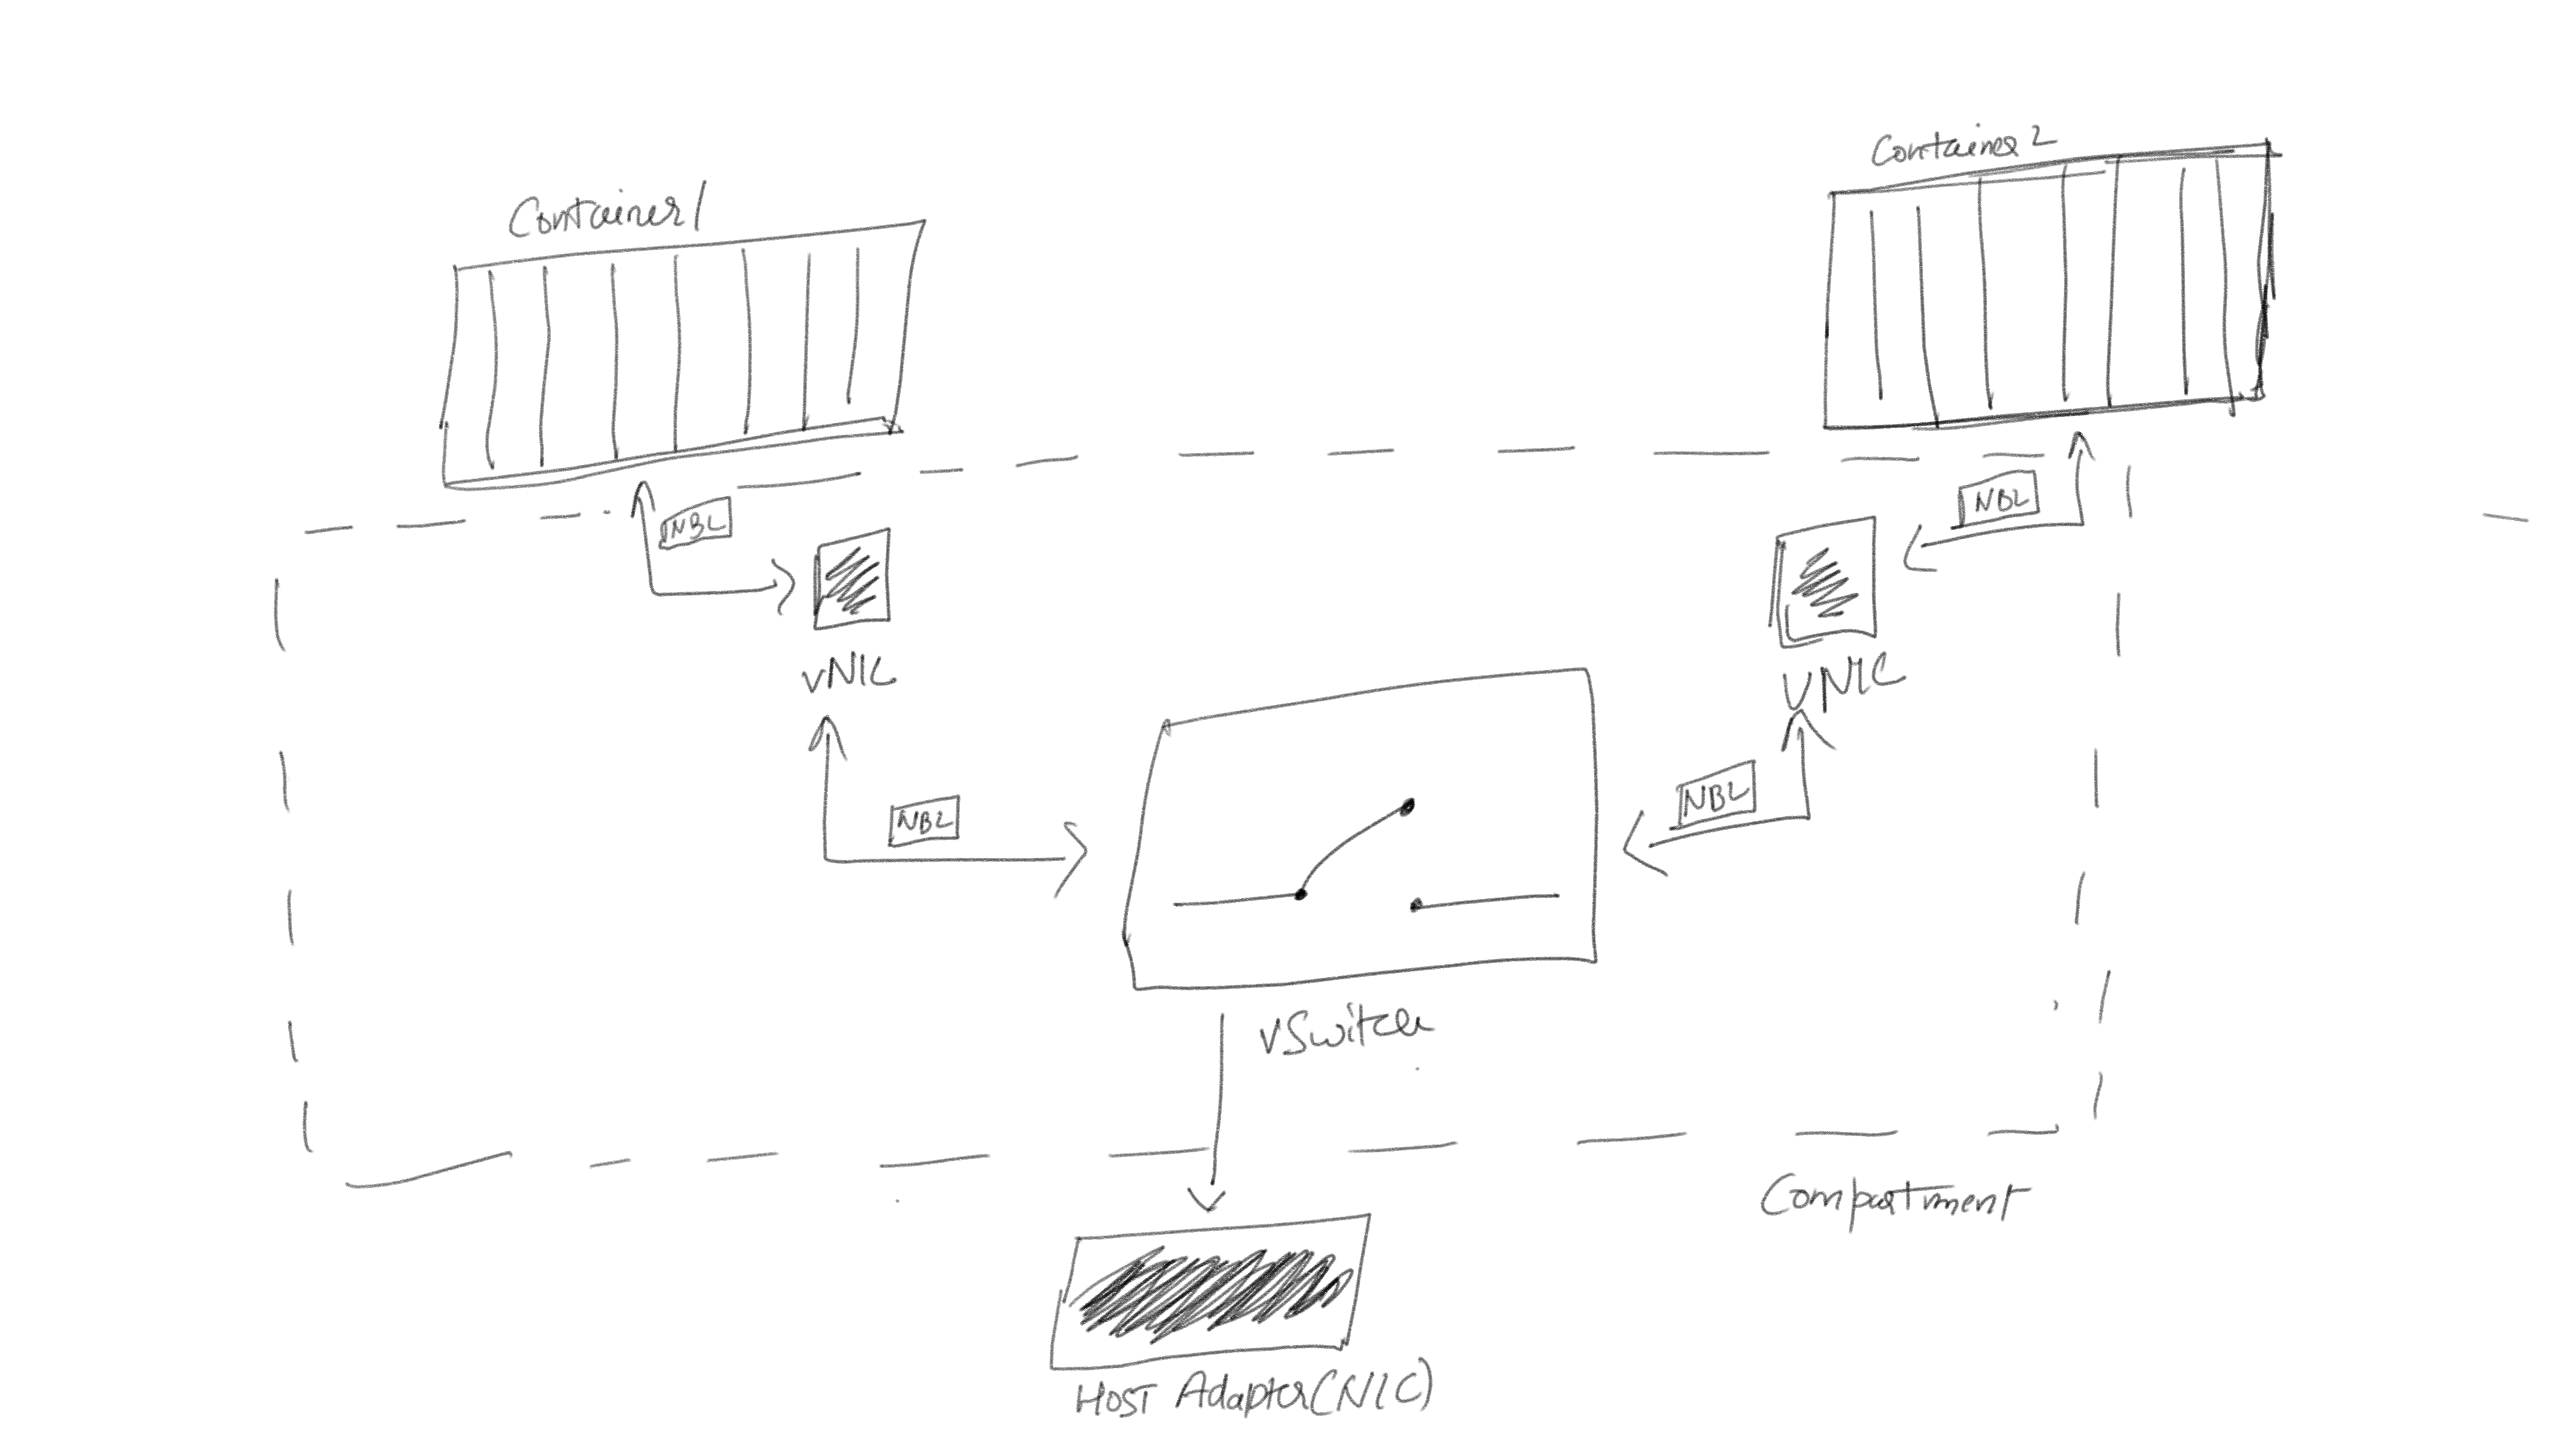 Container 2
Container 1
NBL
NBL
vNIC
VNIC
NBL
NBL
vSwitch
Compartment
HOST Adapter(NIC)